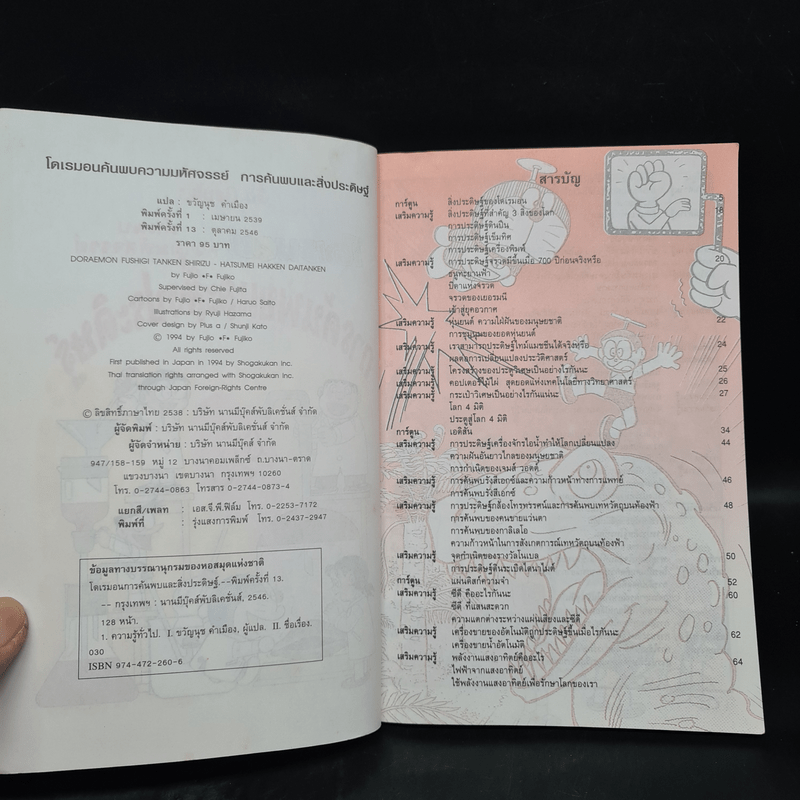 โดเรมอนค้นพบความมหัศจรรย์ การค้นพบและสิ่งประดิษฐ์
แปล : ขวัญนุช คำเมือง
พิมพ์ครั้งที่ 1 : เมษายน 2539
พิมพ์ครั้งที่ 13 : ตุลาคม 2546
ราคา 95 บาท
DORAEMON FUSHIGI TANKEN SHIRIZU - HATSUMEI HAKKEN DAITANKEN
by Fujio •F• Fujiko
Supervised by Chie Fujita
Cartoons by Fujio •F• Fujiko / Haruo Saito
Illustrations by Ryuji Hazama
Cover design by Plus a / Shunji Kato
© 1994 by Fujio •F• Fujiko
All rights reserved
First published in Japan in 1994 by Shogakukan Inc.
Thai translation rights arranged with Shogakukan Inc.
through Japan Foreign-Rights Centre
© ลิขสิทธิ์ภาษาไทย 2538 : บริษัท นานมีบุ๊คส์พับลิเคชั่นส์ จำกัด
ผู้จัดพิมพ์ : บริษัท นานมีบุ๊คส์พับลิเคชั่นส์ จำกัด
ผู้จัดจำหน่าย : บริษัท นานมีบุ๊คส์ จำกัด
947/158-159 หมู่ 12 บางนาคอมเพล็กซ์ ถ.บางนา-ตราด
แขวงบางนา เขตบางนา กรุงเทพฯ 10260
โทร. 0-2744-0863 โทรสาร 0-2744-0873-4
แยกสี/เพลท : เอส.จี.พี.ฟิล์ม โทร. 0-2253-7172
พิมพ์ที่ : รุ่งแสงการพิมพ์ โทร. 0-2437-2947
ข้อมูลทางบรรณานุกรมของหอสมุดแห่งชาติ
โดเรมอนการค้นพบและสิ่งประดิษฐ์.--พิมพ์ครั้งที่ 13.
-- กรุงเทพฯ : นานมีบุ๊คส์พับลิเคชั่นส์, 2546.
128 หน้า.
1. ความรู้ทั่วไป. I. ขวัญนุช คำเมือง, ผู้แปล. II. ชื่อเรื่อง.
030
ISBN 974-472-260-6
สารบัญ
การ์ตูน สิ่งประดิษฐ์ของโดเรมอน
เสริมความรู้ สิ่งประดิษฐ์ที่สำคัญ 3 สิ่งของโลก
การประดิษฐ์ดินปืน
การประดิษฐ์เข็มทิศ
การประดิษฐ์เครื่องพิมพ์
เสริมความรู้ การประดิษฐ์จรวดมีขึ้นเมื่อ 700 ปีก่อนจริงหรือ 20
ธนูทะยานฟ้า
บิดาแห่งจรวด
จรวดของเยอรมนี
เข้าสู่ยุคอวกาศ
เสริมความรู้ หุ่นยนต์ ความใฝ่ฝันของมนุษยชาติ 22
การชุมนุมของยอดหุ่นยนต์
เสริมความรู้ เราสามารถประดิษฐ์ไทม์แมชชีนได้จริงหรือ 24
ผลต่อการเปลี่ยนแปลงประวัติศาสตร์
เสริมความรู้ โครงสร้างของประตูวิเศษเป็นอย่างไรกันนะ 25
เสริมความรู้ คอปเตอร์ไม้ไผ่ สุดยอดแห่งเทคโนโลยีทางวิทยาศาสตร์ 26
เสริมความรู้ กระเป๋าวิเศษเป็นอย่างไรกันแน่นะ 27
โลก 4 มิติ
ประตูสู่โลก 4 มิติ
การ์ตูน เอดิสัน 34
เสริมความรู้ การประดิษฐ์เครื่องจักรไอน้ำทำให้โลกเปลี่ยนแปลง 44
ความฝันอันยาวไกลของมนุษยชาติ
การกำเนิดของเจมส์ วอตต์
เสริมความรู้ การค้นพบรังสีเอกซ์และความก้าวหน้าทางการแพทย์ 46
การค้นพบรังสีเอกซ์
เสริมความรู้ การประดิษฐ์กล้องโทรทรรศน์และการค้นพบเทหวัตถุบนท้องฟ้า 48
การค้นพบของคนขายแว่นตา
การค้นพบของกาลิเลโอ
ความก้าวหน้าในการสังเกตการณ์เทหวัตถุบนท้องฟ้า
เสริมความรู้ จุดกำเนิดของรางวัลโนเบล 50
การประดิษฐ์ดินระเบิดไดนาไมต์
การ์ตูน แผ่นดิสก์ความจำ 52
เสริมความรู้ ซีดี คืออะไรกันนะ 60
ซีดี ที่แสนสะดวก
ความแตกต่างระหว่างแผ่นเสียงและซีดี
เสริมความรู้ เครื่องขายของอัตโนมัติถูกประดิษฐ์ขึ้นเมื่อไรกันนะ 62
เครื่องขายน้ำอัตโนมัติ
เสริมความรู้ พลังงานแสงอาทิตย์คืออะไร 64
ไฟฟ้าจากแสงอาทิตย์
ใช้พลังงานแสงอาทิตย์เพื่อรักษาโลกของเรา